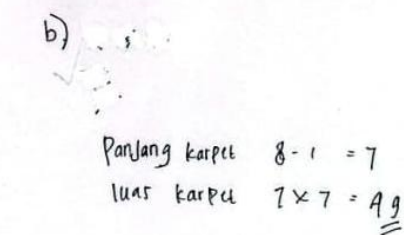 b)
Panjang karpet 8 - 1 = 7
luas karpet 7 x 7 = 49